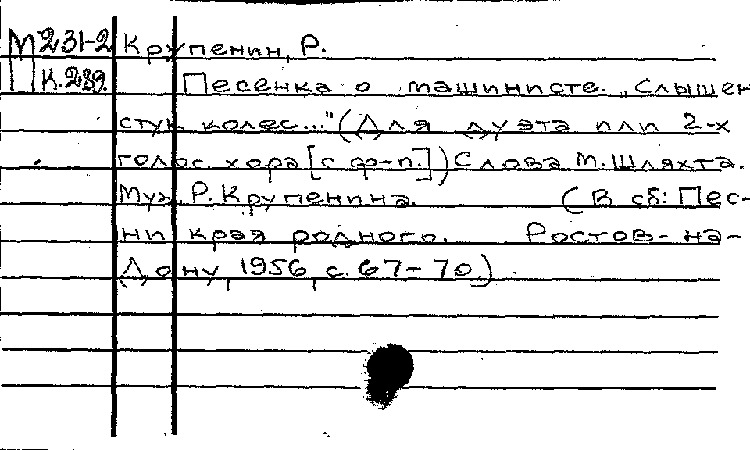 М231-2 Крупенин, Р.
К.289 Песенка о машинисте. „Слышен
стук колес..." (Для дуэта или 2-х
голос. хора [с ф-п.]) Слова М. Шляхта.
Муз. Р. Крупенина. (В сб: Пес-
ни края родного. Ростов-на-
Дону, 1956, с. 67-70.)